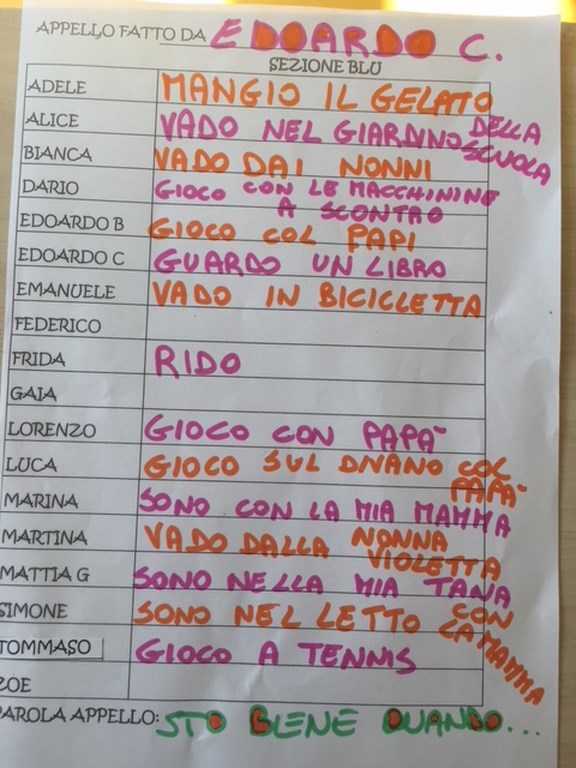 APPELLO FATTO DA EDOARDO C.
SEZIONE BLU
ADELE MANGIO IL GELATO
ALICE VADO NEL GIARDINO DELLA SCUOLA
BIANCA VADO DAI NONNI
DARIO GIOCO CON LE MACCHININE
A SCONTRO
EDOARDO B GIOCO COL PAPI
EDOARDO C GUARDO UN LIBRO
EMANUELE VADO IN BICICLETTA
FEDERICO
FRIDA RIDO
GAIA
LORENZO GIOCO CON PAPA'
LUCA GIOCO SUL DIVANO COL
PAPA'
MARINA SONO CON LA MIA MAMMA
MARTINA VADO DALLA NONNA
VIOLETTA
MATTIA G SONO NELLA MIA TANA
SIMONE SONO NEL LETTO CON
LA MAMMA
TOMMASO GIOCO A TENNIS
ZOE
PAROLA APPELLO: STO BENE QUANDO...